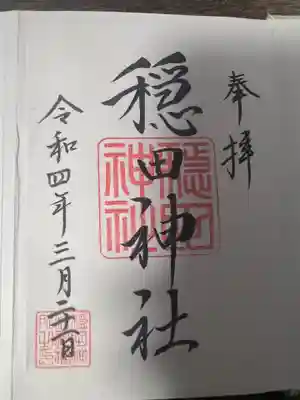 奉拝
穏田神社
令和四年三月二十一日
穏田神社